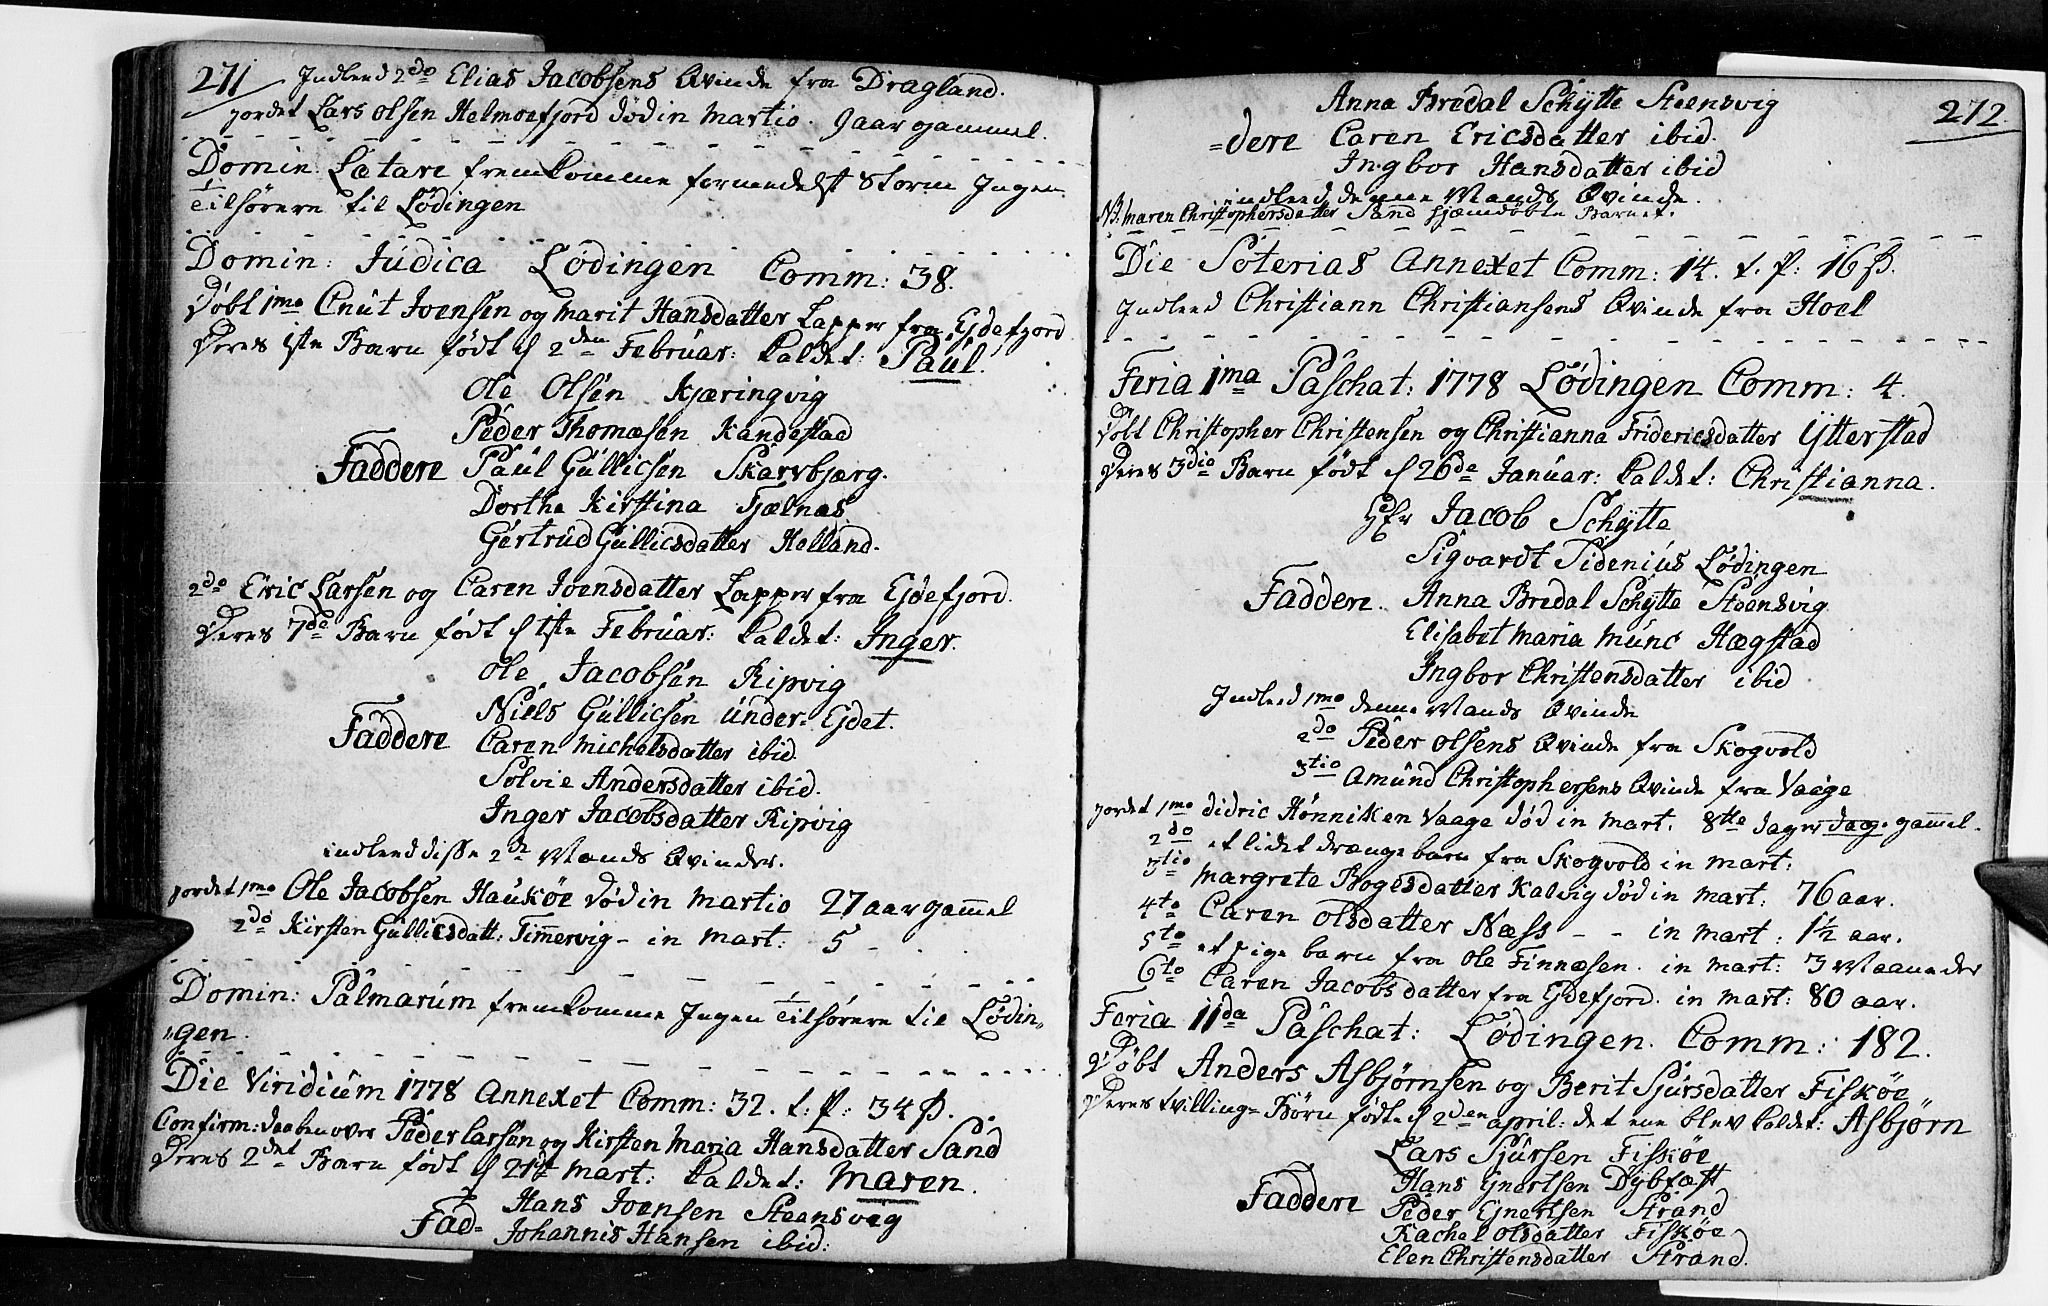 271
Indleed 2do Elias Jacobsens Qvinde fra Dragland.
jordet Lars Olsen Helmoefjord død in Martio. 9 aar gammel.
Domin: Lætare fremkomme formedelst Storm Ingen
Tilhørere til Lødingen
Domin: Judica Lødingen Comm: 38.
Døbt 1mo Cnut Joensen og Marit Hansdatter Lapper fra Ejdefjord
Deres 1ste Barn født d 2den Februar: kaldet: Paul.
Ole Olsen Kjæringvig
Peder Thomæsen Kandestad
Faddere Paul Gullicsen Skarvbjærg.
Dorthe Kirstina Fjælnæs
Gertrud Gullicsdatter Holland.
2do Eric Larsen og Caren Joensdatter Lapper fra Ejdefjord.
Deres 7de Barn født d 1ste Februar: kaldet: Inger.
Ole Jacobsen Ripvig
Niels Gullicsen under Ejdet.
Faddere Caren Michelsdatter ibid.
Solvie Andersdatter ibid.
Inger Jacobsdatter Ripvig
indleed disse 2de Mands Qvinder.
jordet 1mo Ole Jacobsen Haukøe død in Martio 27 aar gammel
2do Kirsten Gullicsdatt: Timmervig - in Mart: 5 -
Domin: Palmarum fremkomme Ingen Tilhørere til Lødin-
"gen.
Die Viridium 1778 Annexet Comm: 32. t. p: 34 ß.
Confirm: daaben over Peder Larsen og Kirsten Maria Hansdatter Sand
Deres 2det Barn født d 21de Mart: kaldet: Maren.
Hans Joensen Steensvig
Fad= Johannis Hansen ibid:
272.
Anna Bredal Schytte Steensvig
=dere Caren Ericsdatter ibid.
Ingbor Hansdatter ibid
indleed denne Mands Qvinde.
NB. Maren Christophersdatter Sand hjemdøbte Barnet.
Die Soterias Annexet Comm: 14. t. p: 16 ß.
Indleed Christiann Christiansens Qvinde fra Hoel
Feria 1ma Paschat: 1778 Lødingen Comm: 4.
Døbt Christopher Christensen og Christianna Fridericsdatter Ytterstad
Deres 3dio Barn født d 26de Januar: kaldet: Christianna.
Hr Jacob Schytte
Sigvardt Sidenius Lødingen
Faddere. Anna Bredal Schytte Steensvig
Elisabet Maria Munc Hægstad
Ingbor Christensdatter ibid
Indleed 1mo denne Mands Qvinde
2do Peder Olsens Qvinde fra Skogvold
3tio Amund Christophersens Qvinde fra Vaage
jordet 1mo Didric Hønniken Vaage død in Mart. 8tte dager dag. gammel.
2do et lidet drænge barn fra Skogvold in Mart:
3tio Margrete Bogesdatter Kalvig død in Mart: 76 aar.
4to Caren Olsdatter Næss - - in Mart: 1½ aar.
5to et pige barn fra Ole Finnæsen. in Mart: 3 Maaneder
6to Caren Jacobsdatter fra Ejdefjord. in Mart: 80 aar.
Feria IIda Paschat: Lødingen. Comm: 182.
Døbt Anders Asbjørnsen og Berit Sjursdatter Fiskøe
Deres tvilling=Børn fødte d 2den April: det ene blev kaldet: Asbjørn
Lars Sjursen Fiskøe
Hans Ejnertsen Dybfæst
Faddere Peder Ejnertsen Strand
Rachel Olsdatter Fiskøe
Elen Christensdatter Strand.